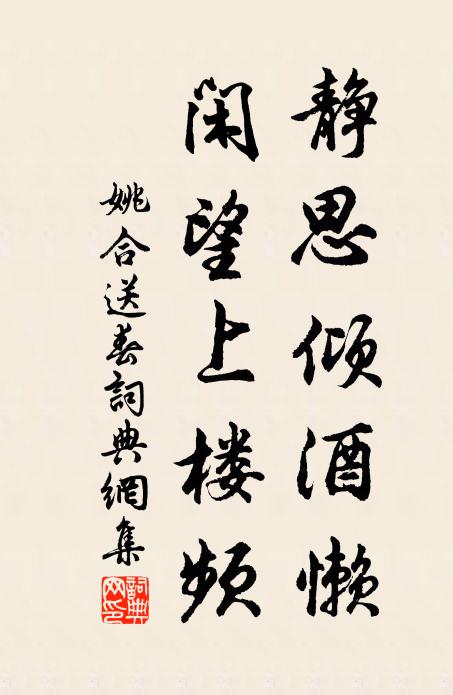 静思倾酒懒
闲望上楼频
姚合送春詞典網集
詞典网印